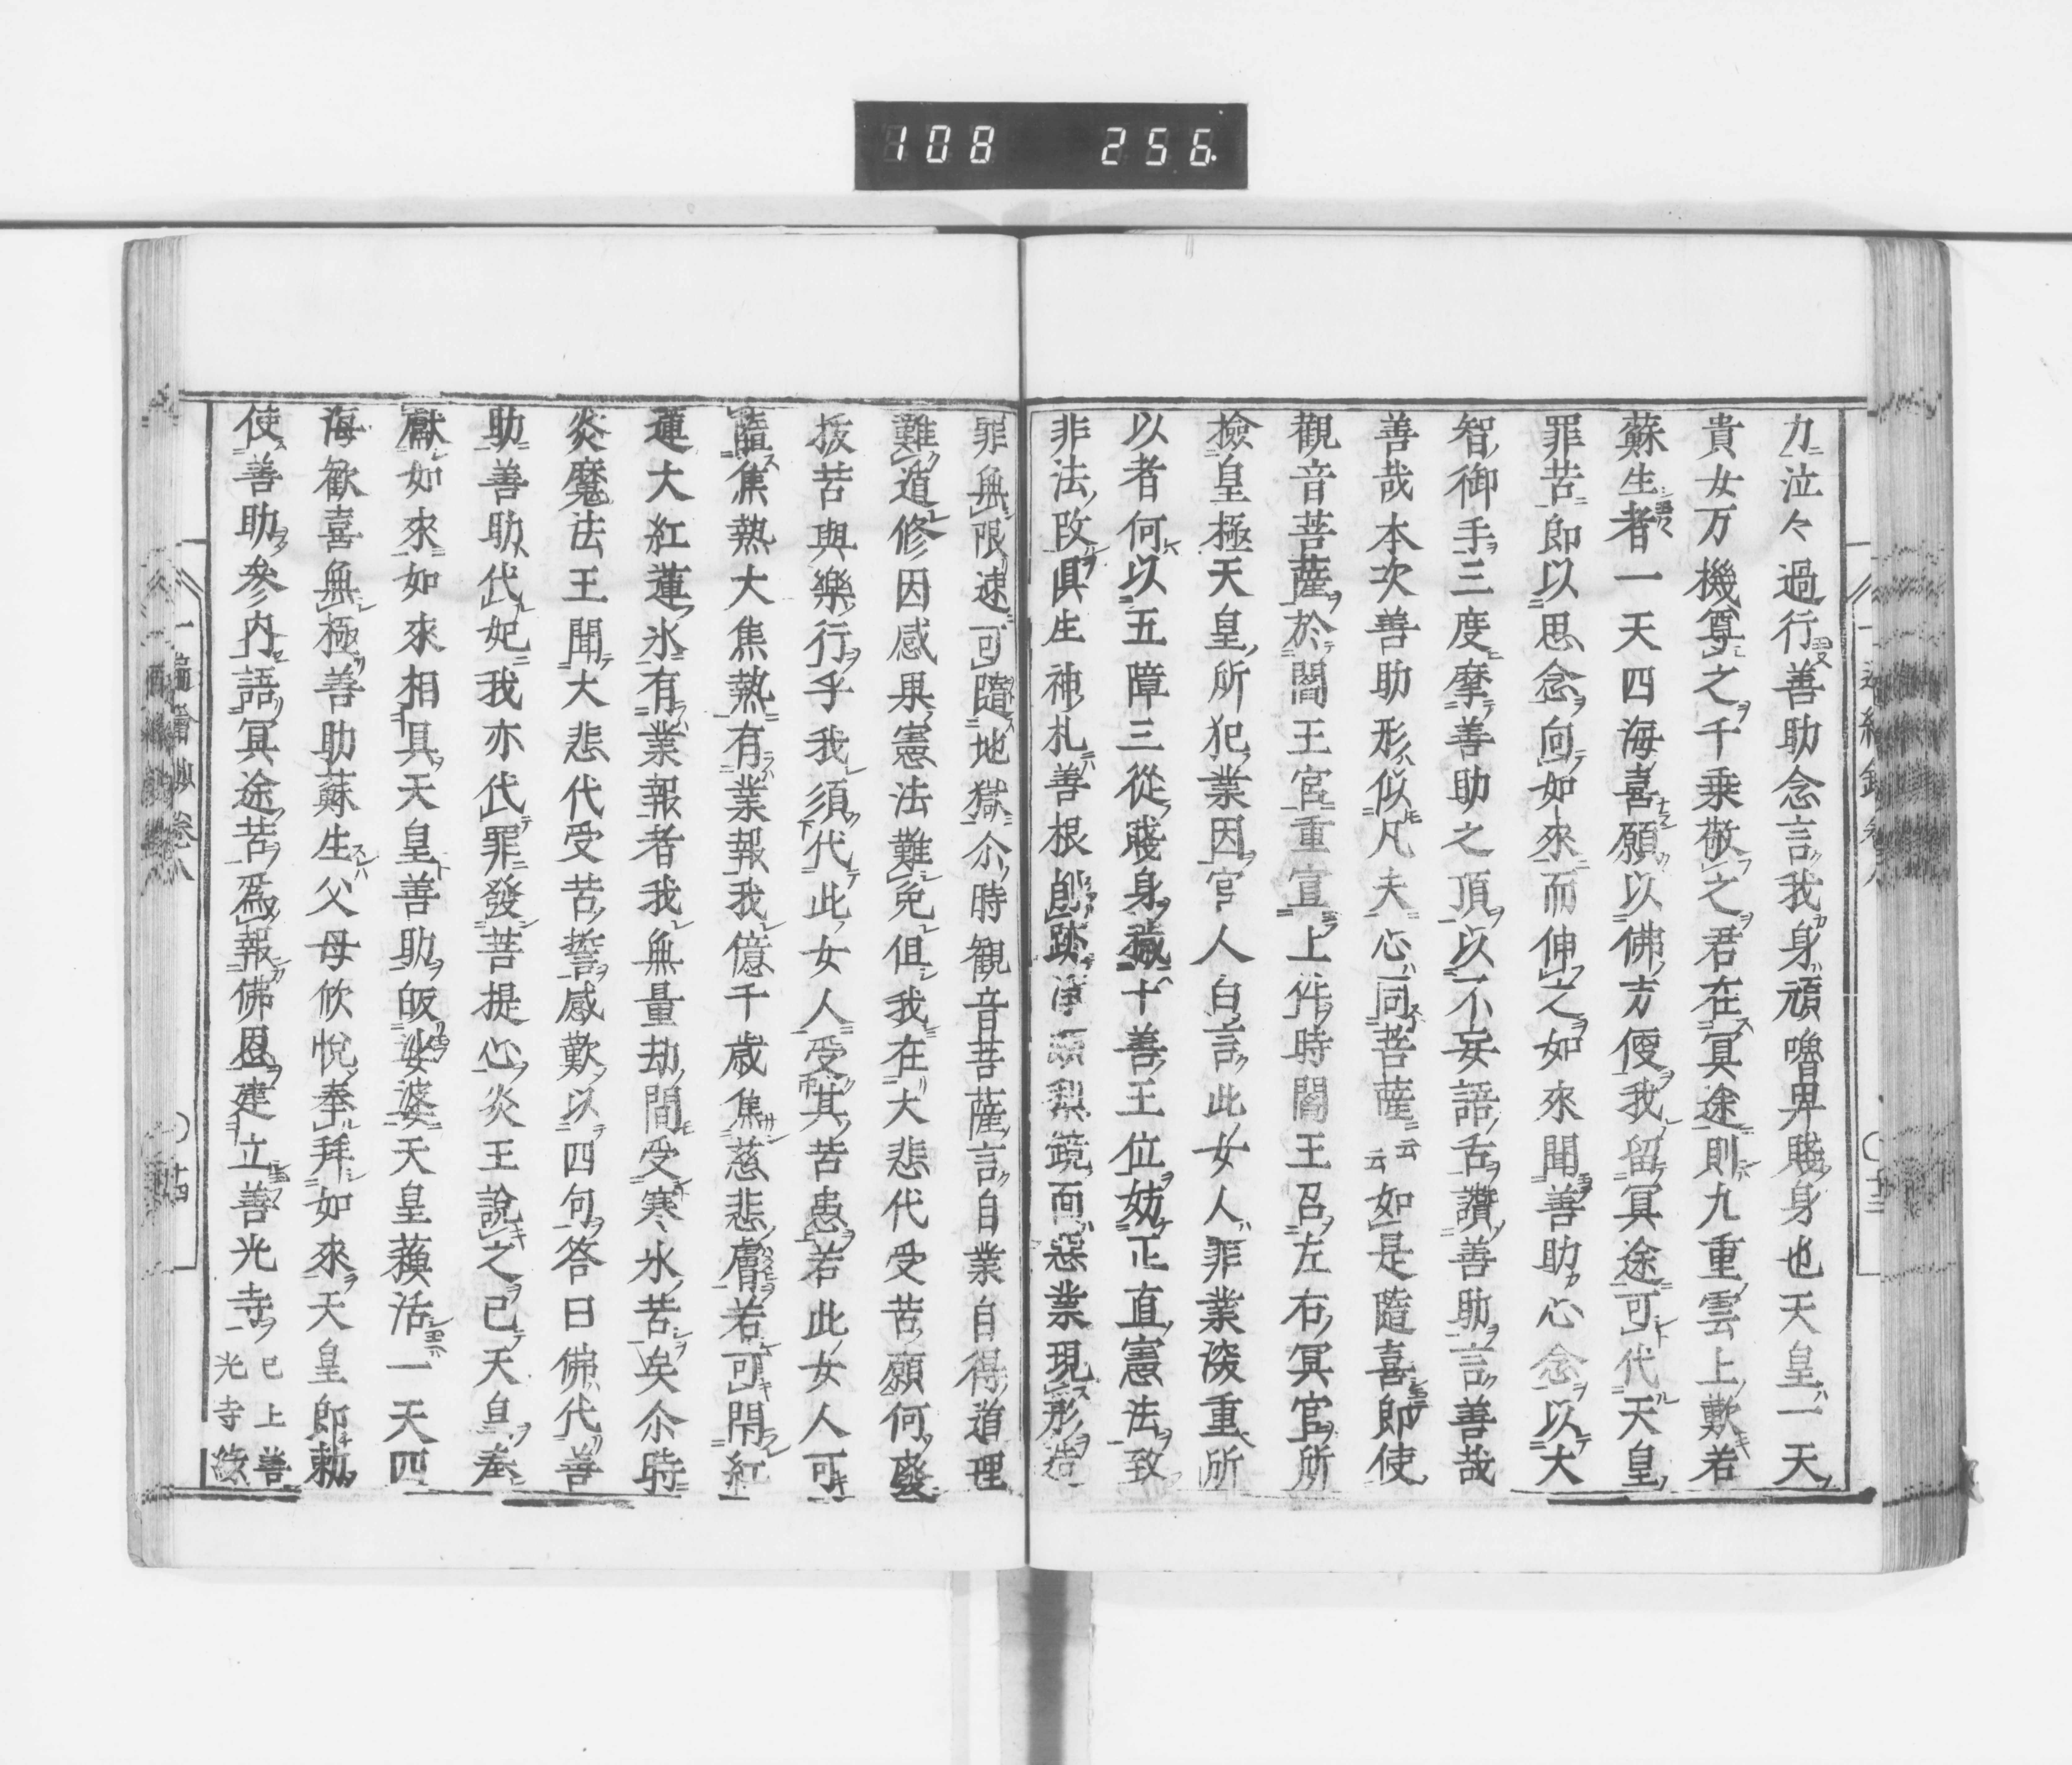 108 256
力泣々過行善助念言我身頑嚕卑賤身也天皇一天
貴女万機尊之千乗敬之君在冥途則九重雲上歎若
蘇生者一天四海喜願以佛方便我留冥途可代天皇
罪苦即以思念向如來而伸之如來聞善助心念以大
智御手三度摩善助之頂以不妄語舌讚善助言善哉
善哉本次善助形似凡夫心同菩薩云云如是隨喜即使
觀音菩薩於閻王宮重宣上件時閻王召左右冥官所
撿皇極天皇所犯業因官人白言此女人罪業深重所
以者何以五障三從賤身穢十善王位妨正直憲法致
非法政眞生神札善根 跡淨頗梨鏡面惡業現形造
罪無限速可墮地獄尒時觀音菩薩言自業自得道理
難道修因感果憲法難免但我在大悲代受苦願何廢
拔苦與樂行乎我須代此女人受其苦患若此女人可
墮焦熱大焦熱有業報我億千歳焦慈悲膚若可閇紅
蓮大紅蓮氷有業報者我無量劫間受寒氷苦矣尒時
炎魔法王聞大悲代受苦誓感歎以四句答曰佛代善
助善助代妃我亦代罪發菩提心炎王説之已天皇奉
獻如來如來相具天皇善助皈娑婆天皇蘓活一天四
海歡喜無極善助蘇生父母欣悦奉拜如來天皇即勅
使善助參内語冥途苦爲報佛恩建立善光寺已上善
光寺縁